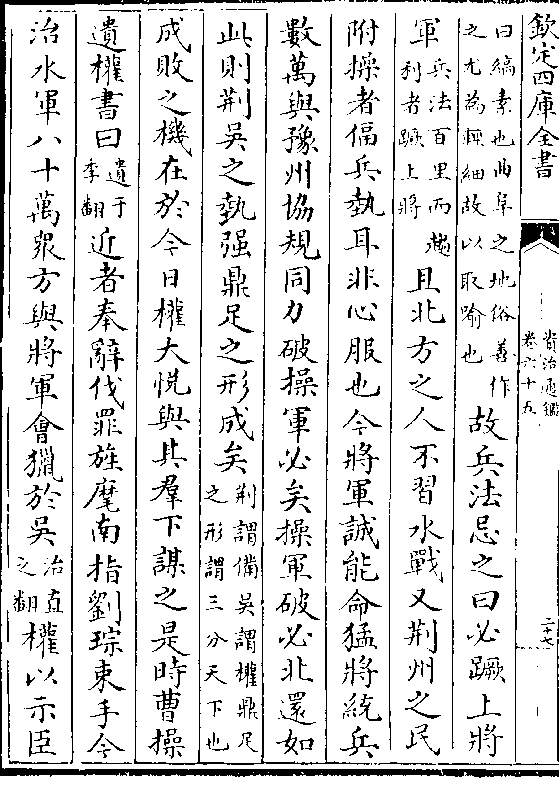 欽定四庫全書
資治通鑑
卷六十五
曰縞素也曲阜之地俗善作
之尤為輕細故以取喻也
故兵法忌之曰必蹶上將
軍
兵法百里而趨
利者蹶上將
且北方之人不習水戰又荆州之民
附操者偪兵埶耳非心服也今將軍誠能命猛將統兵
數萬與豫州協規同力破操軍必矣操軍破必北還如
此則荆吳之埶强鼎足之形成矣
荆謂備吳謂權鼎足
之形謂三分天下也
成敗之機在於今日權大悦與其羣下謀之是時曹操
遺權書曰
遺于
季翻
近者奉辭伐罪旌麾南指劉琮束手今
治水軍八十萬衆方與將軍會獵於吳
治直
之翻
權以示臣